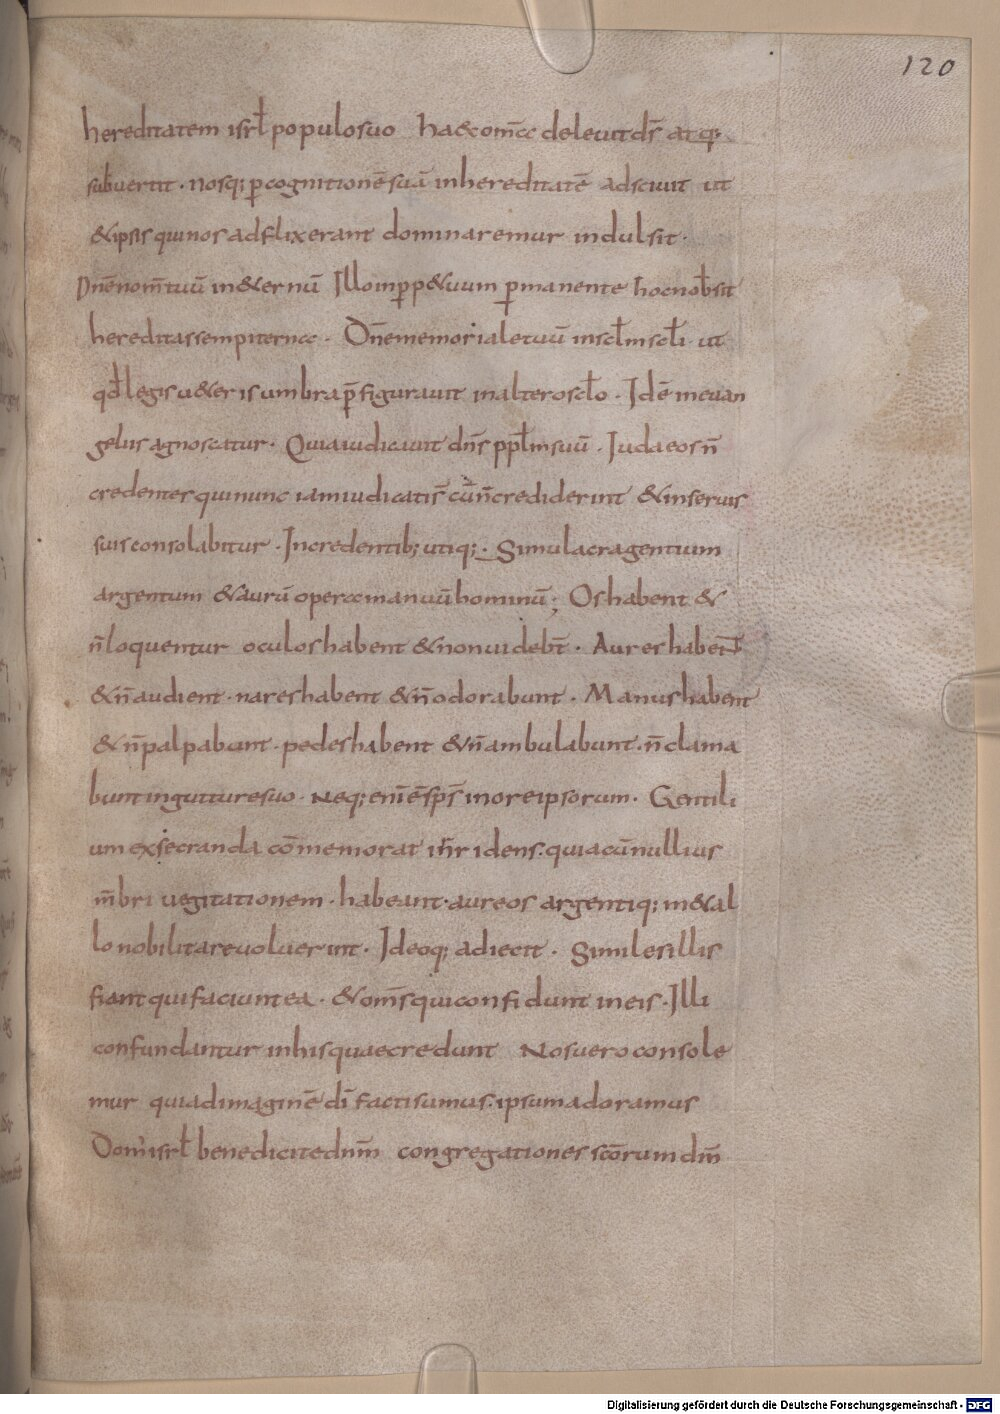 120
hereditatem isrł populo suo Haec om̅a deleuit dš atq;
subuertit · nosq; p cognitionē suā in hereditatē adsciuit ut
& ipsis qui nos adflixerant dominaremur indulsit ·
Dn̅e nom̅ tuū in &ernū Illo in pp&uum pmanente hoc nobˉ sit
hereditas sempiterna · Dn̅e memoriale tuū in scłm scłi ut
qđ legis u&eris umbra p̅figurauit in altero scło · Idē in euan
geliis agnoscatur · Quia iudicauit dn̅s ppłm suū · Iudaeos n̅
credentes qui nunc iam iudicati s̅ cū n̅ crediderint & in seruis
suis consolabitur · In credentib; utiq; · Simulacra gentium
argentum & aurū opera manuū hominū; Os habent &
n̅ loquentur oculos habent & non uidebt̅ · Aures habent
& n̅ audient · nares habent & n̅ odorabunt · Manus habent
& n̅ palpabunt · pedes habent & n̅ ambulabunt · n̅ clama
bunt in gutture suo · Neq; enī ē sps̅ in ore ipsorum · Gentili
um exsecranda cōmemorat irridens · quia cū nullius
m̅bri uegitationem · habeant · aureos argentiq; m&al
lo nobilitare uoluerint · Ideoq; adiecit · Similes illis
fiant qui faciunt ea · & om̅s qui confidunt in eis · Illi
confundantur in his quae credunt Nos uero console
mur quia ad imaginē dī facti sumus · ipsum adoramus
Dom' isrł benedicite dnm̅ congregationes scōrum dm̅
Digitalisierung gefördert durch die Deutsche Forschungsgemeinschaft - DFG